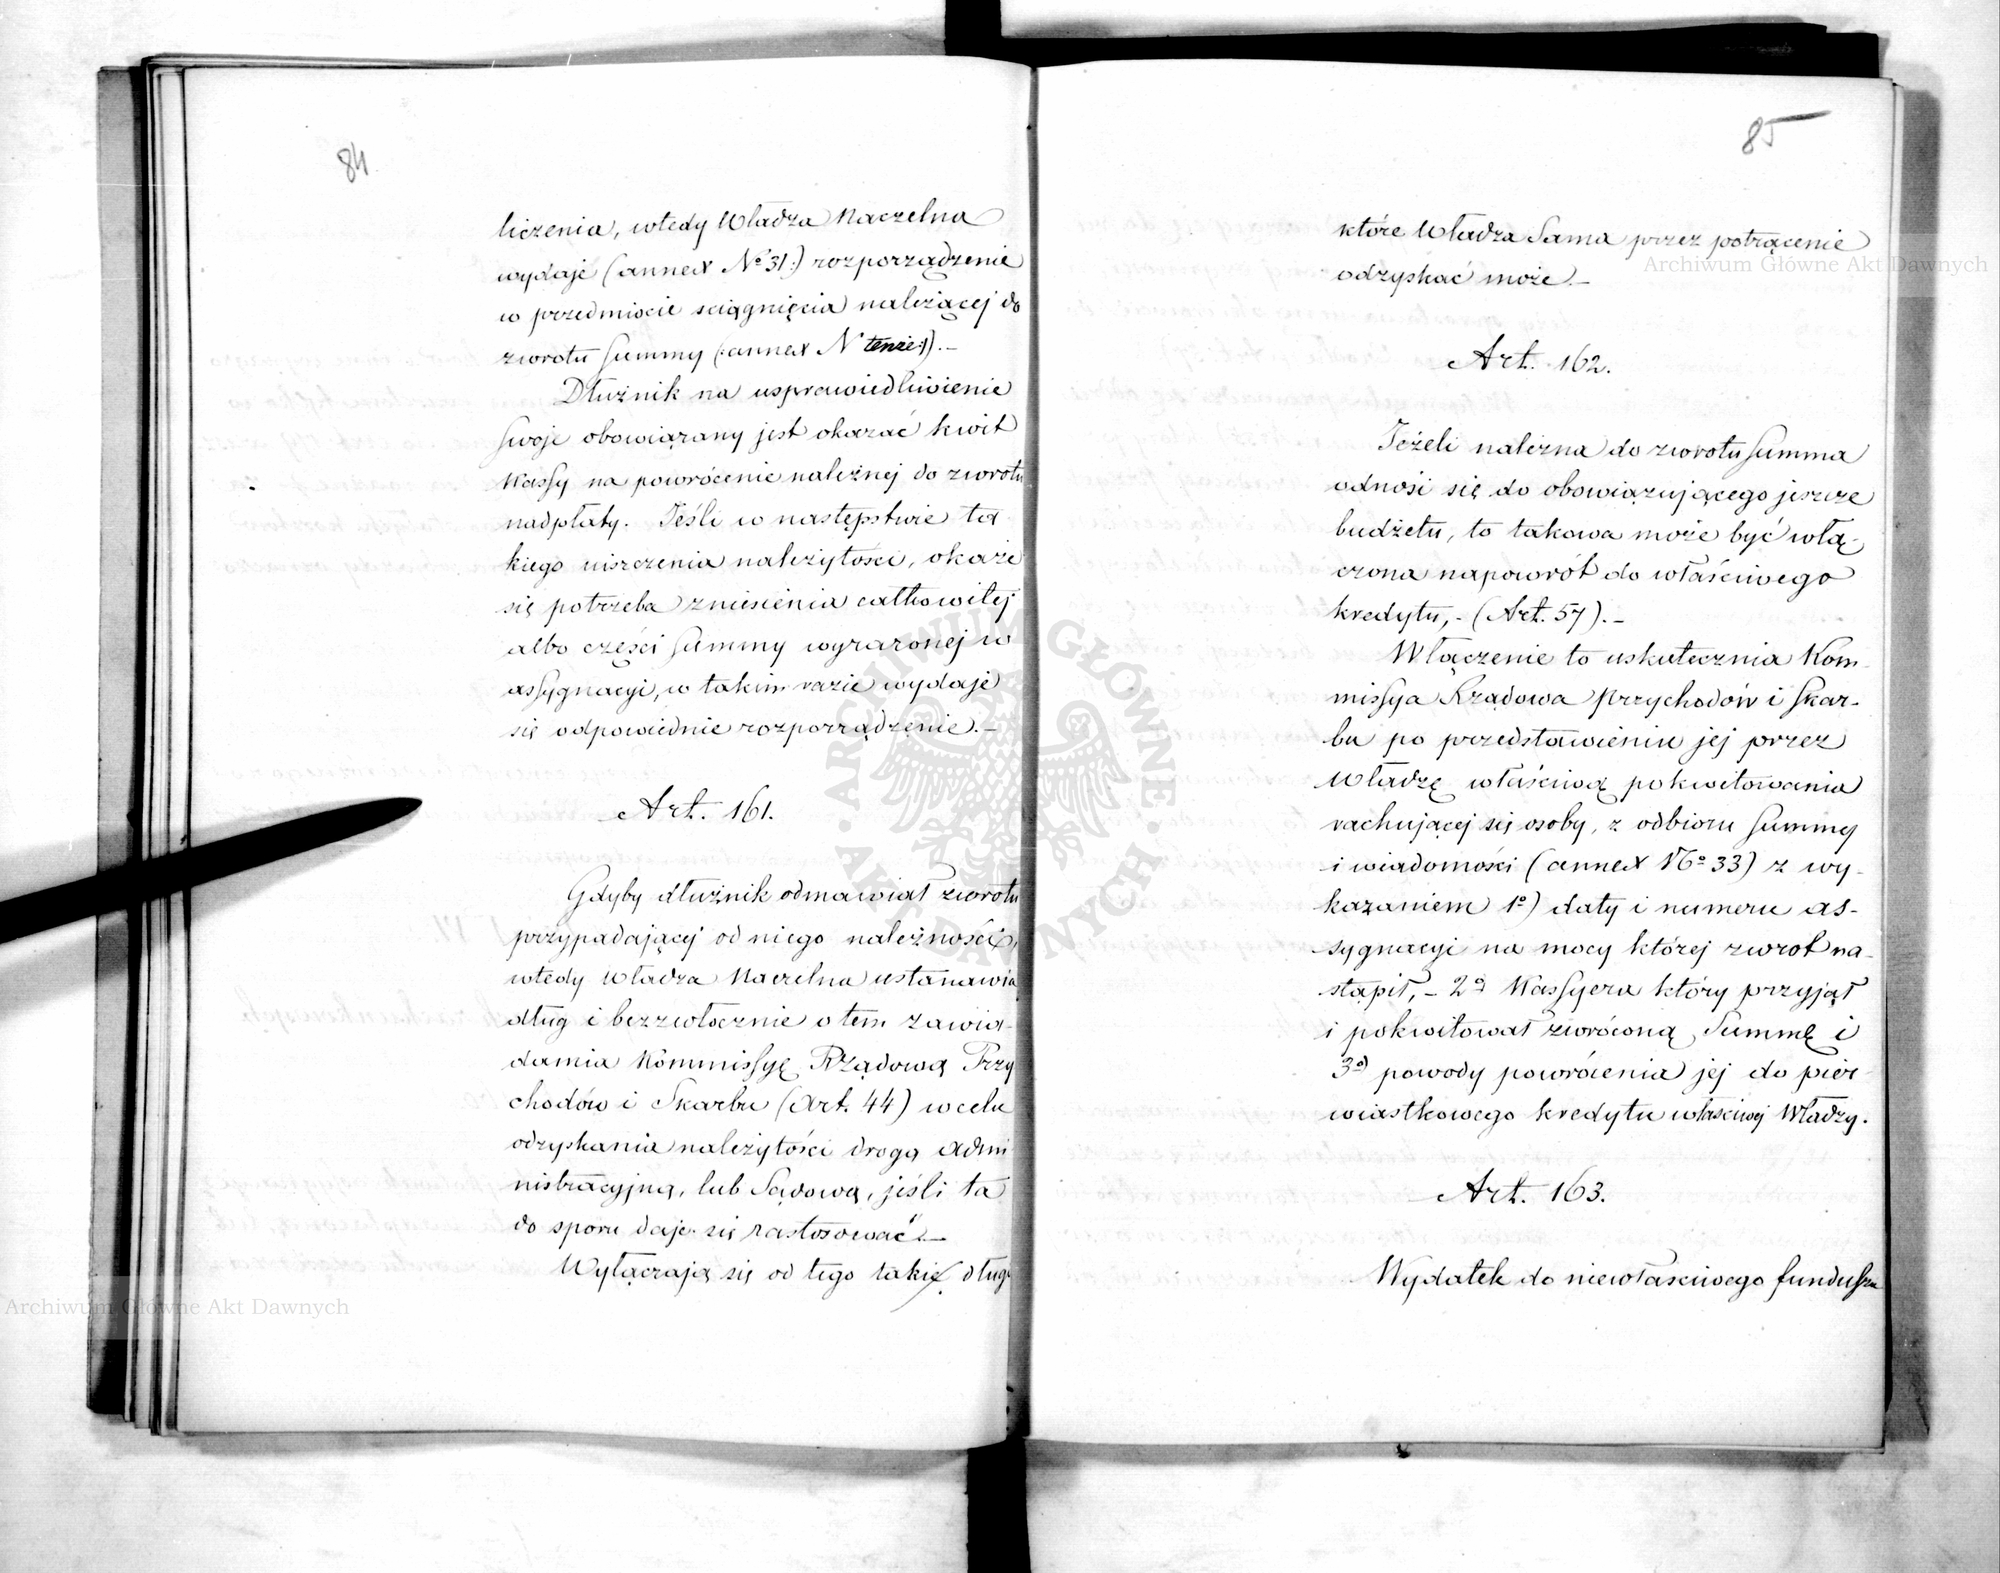 84
liczenia, wtedy Władza Naczelna
wydaje (annex No 31:) rozporządzenie
w przedmiocie sciągnięcia należącej do
zwrotu summy (:annex N tenże:). –
Dłużnik na usprawiedliwienie
swoje obowiązany jest okazać kwit
Kassy na powrócenie należnej do zwrotu
nadpłaty. Jeśli w następstwie ta-
kiego uiszczenia należytości, okaże
się potrzeba zniesienia całkowitej
albo części summy wyrażonej w
assygnacyi, w takim razie wydaje
się odpowiednie rozporządzenie. –
Art. 161.
Gdyby dłużnik odmawiał zwrotu
przypadającej od niego należności,
wtedy Władza Naczelna ustanawia
dług i bezzwłocznie o tem zawia-
damia Kommissyę Rządową Przy
chodów i Skarbu (Art. 44) w celu
odzyskania należytości drogą admi
nistracyjną, lub Sądową, jeśli ta
do sporu daje się zastosować. –
Wyłączają się od tego takie długi
85
które Władza Sama przez potrącenie
odzyskać może. –
Art. 162.
Jeżeli należna do zwrotu summa
odnosi się do obowiązującego jeszcze
budżetu, to takowa może być włą-
czona napowrót do właściwego
kredytu, - (Art. 57). –
Włączenie to uskutecznia Kom-
missya Rządowa Przychodów i Skar-
bu po przedstawieniu jej przez
Władzę właściwą pokwitowania
rachującej się osoby, z odbioru summy
i wiadomości (annex No 33) z wy-
kazaniem 1o) daty i numeru as-
sygnacyi na mocy której zwrot na-
stąpił, – 2o Kassyera który przyjął
i pokwitował zwróconą Summę i
3o) powody powrócenia jej do pier-
wiastkowego kredytu właściwej Władzy.
Art. 163.
Wydatek do niewłaściwego funduszu
Archiwum Główne Akt Dawnych
Archiwum Główne Akt Dawnych
ARCHIWUM GŁÓWNE AKT DAWNYCH